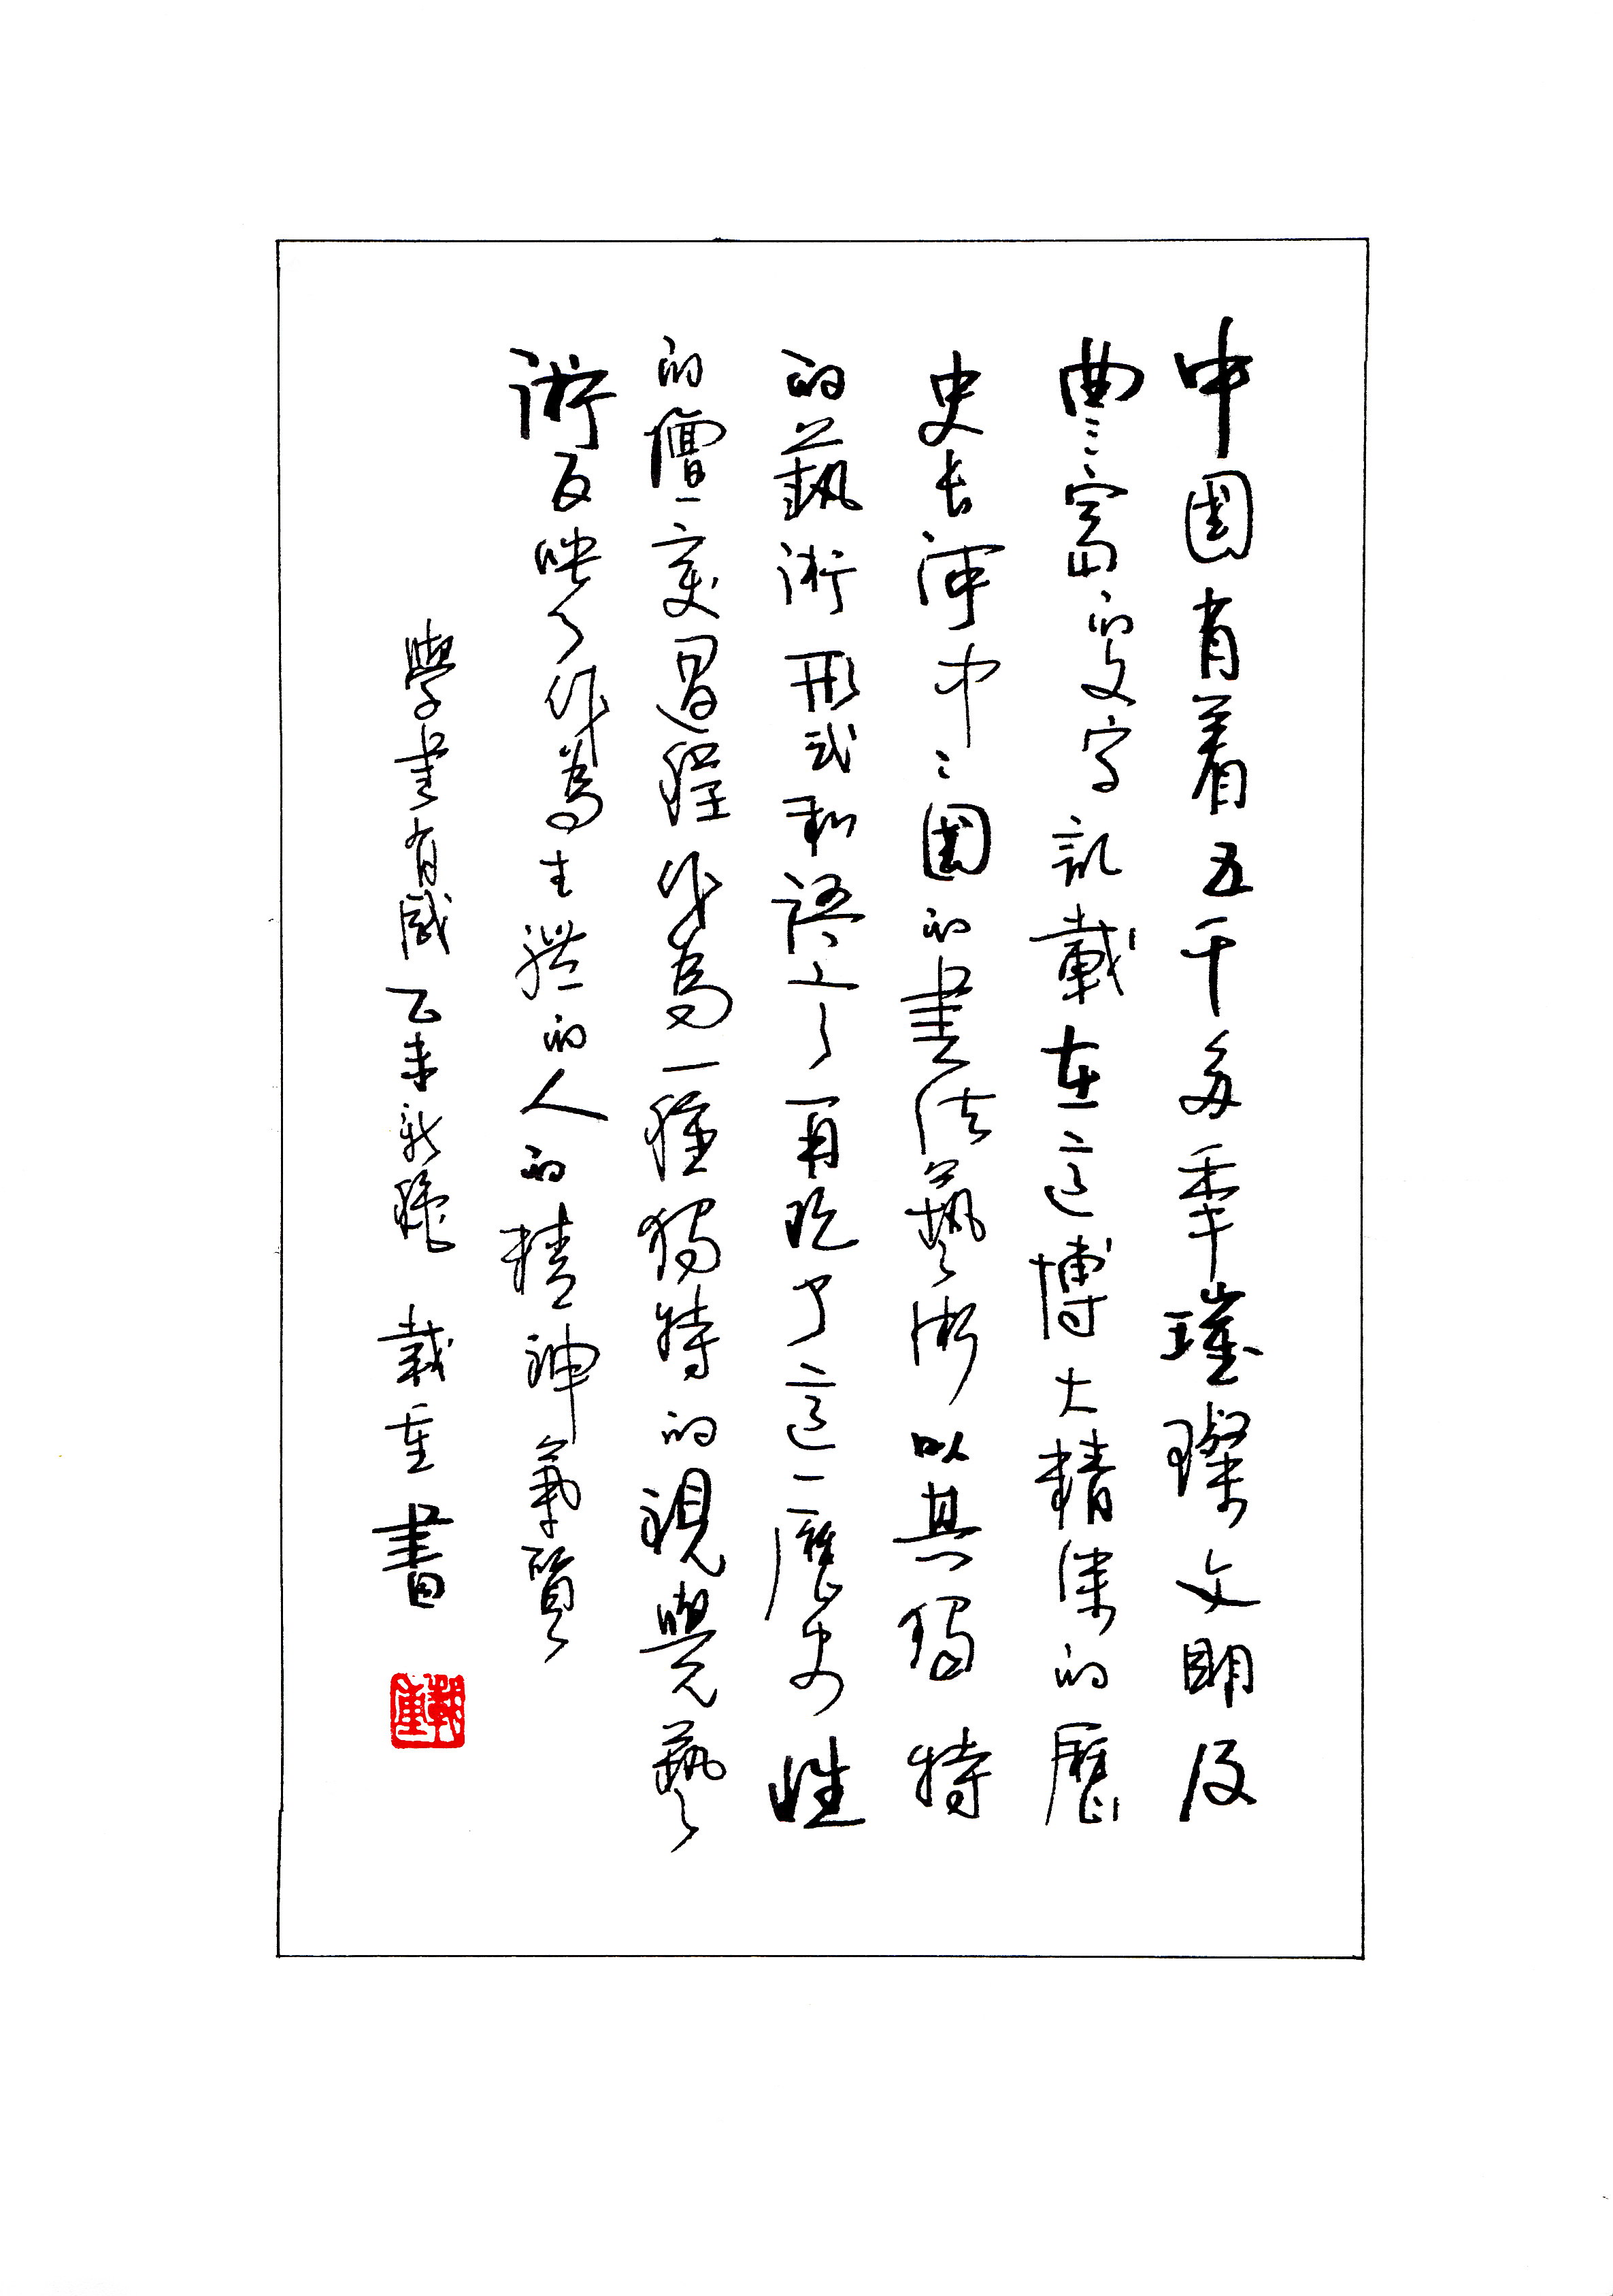 中國有着五千多年璀璨文明及
豐富的文字記載在這博大精深的歷
史長河中中國的書法藝術以其獨特
的藝術形式和語言再現了這一歷史性
的嬗變過程作為一種獨特的視覺藝
術反映了作為主體的人的精神氣質
學書有感 乙未新秋 載重書
載重